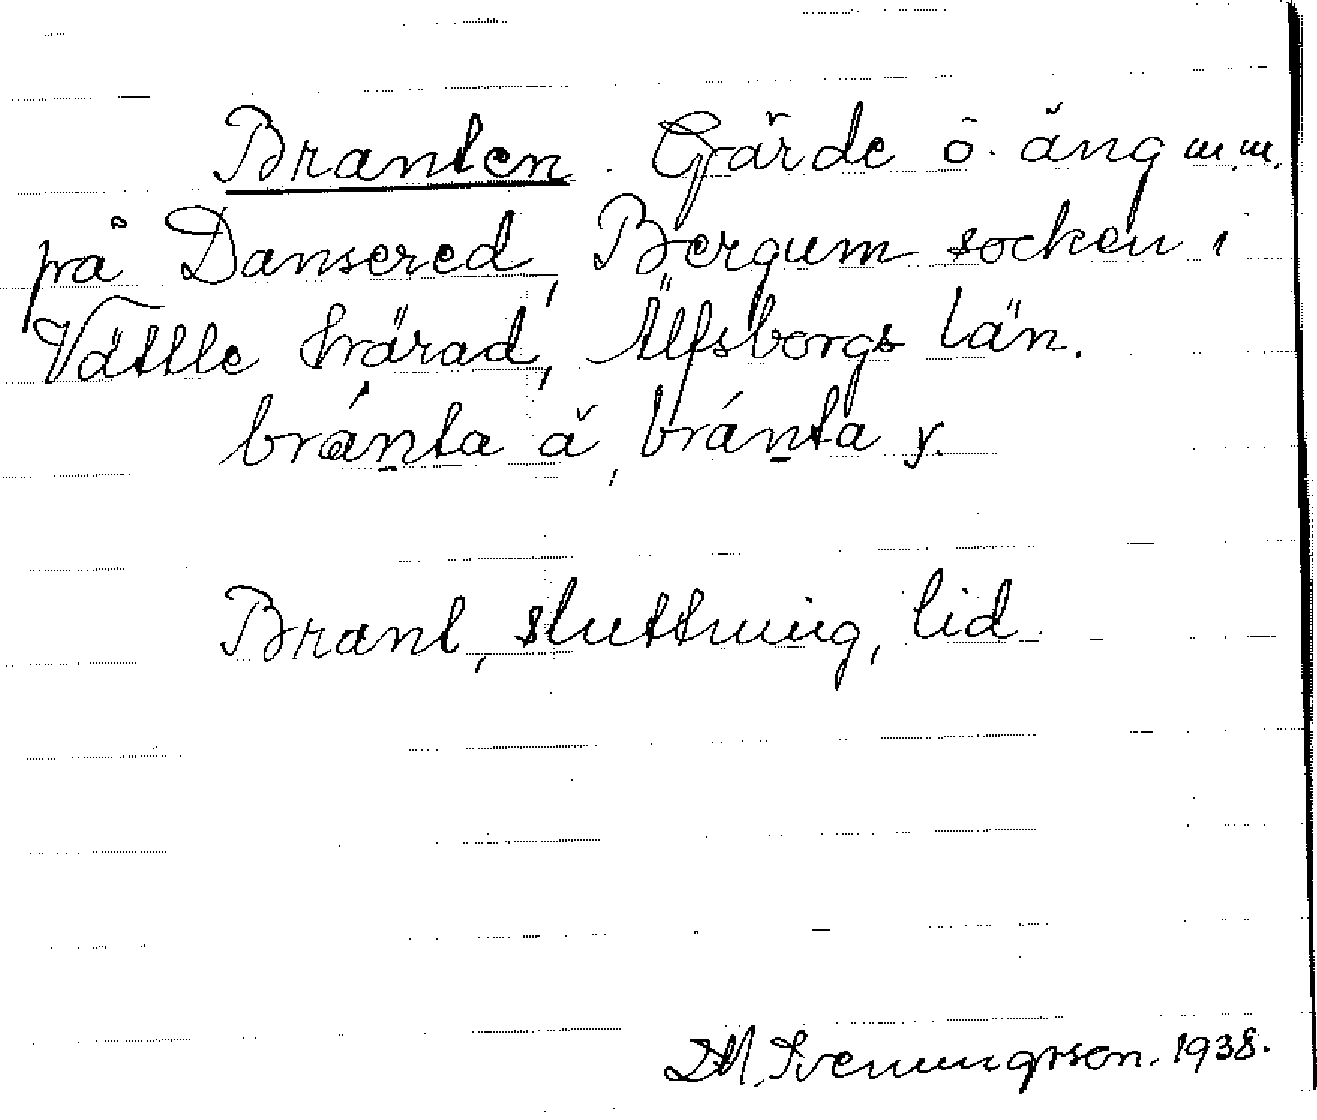 Branten. Gärde o. äng m.m.
på Dansered, Bergum socken i
Vättle härad, Älfsborgs län.
bránta ä, bránta y.
Brant, sluttning, lid
D.M. Svenungsson. 1938.